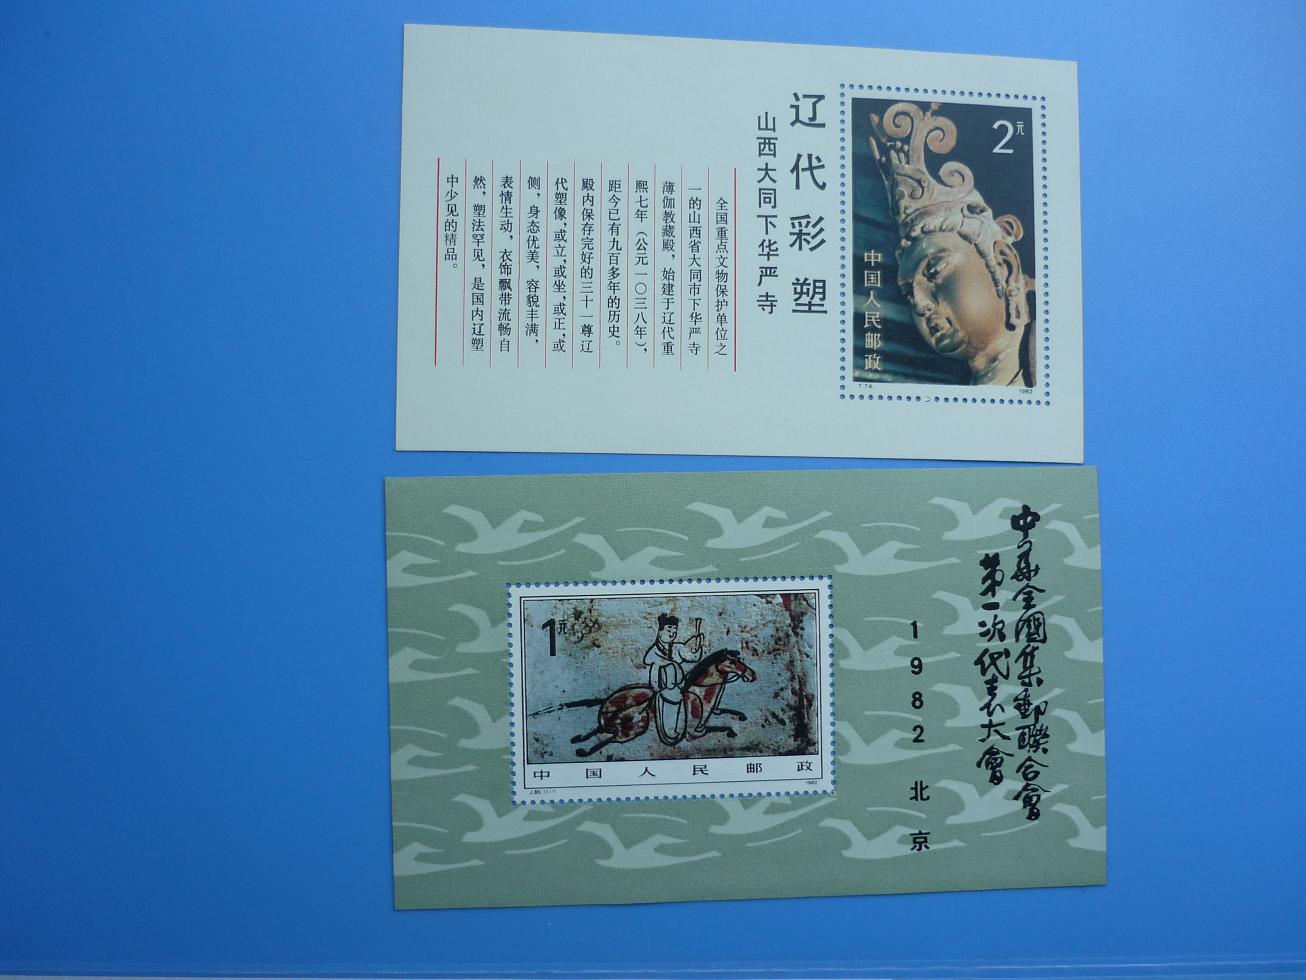 2元
中国人民邮政
T.74.
1982
辽代彩塑
山西大同下华严寺
全国重点文物保护单位之
一的山西省大同市下华严寺
薄伽教藏殿，始建于辽代重
熙七年（公元一〇三八年），
距今已有九百多年的历史。
殿内保存完好的三十一尊辽
代塑像，或立，或坐，或正，或
侧，身态优美，容貌丰满，
表情生动，衣饰飘带流畅自
然，塑法罕见，是国内辽塑
中少见的精品。
中华全國集郵聯合會
第一次代表大會
1982北京
1元
中国人民邮政
J.85.(1-1)
1982